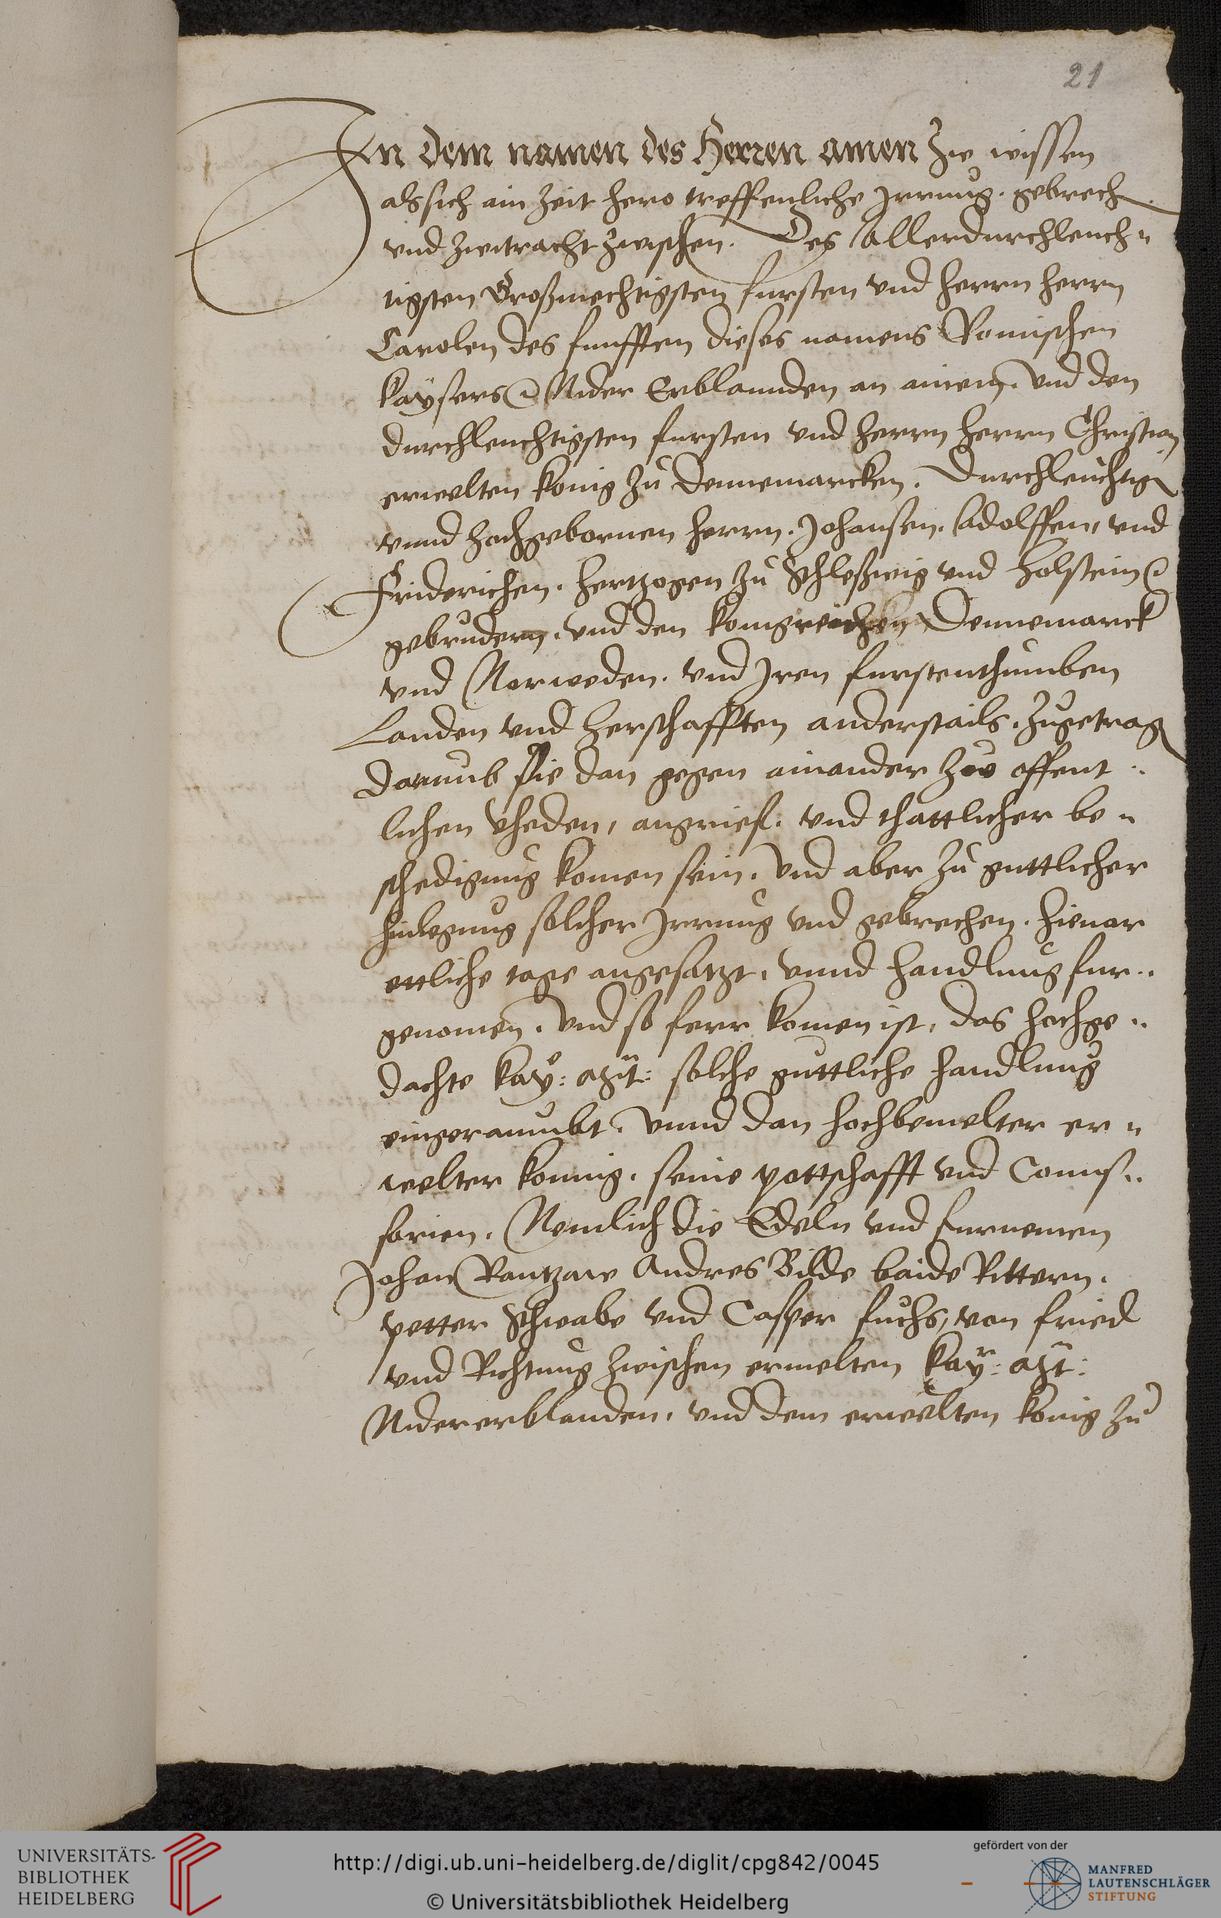 21
In dem namen des Herren amen Zw wissen
als sich ain Zeit hero treffenliche Jrrung. gebrech
vnd Zwitracht Zwischen. Des Allerdurchleuch-
tigsten Großmechtigsten fursten vnd herrn herrn
Carolen des funfften dieses namens Romischen
Kaysers Nider Erblannden an ainem, vnd den
durchleuchtigsten fursten vnd herrn herrn Christian
erwelten konig Zu Dennemarcken. Durchleuchtig
vnnd Hochgebornen herrn. Johansen. Adolffen, vnd
Friderichen. Hertzogen Zu Schleßwig vnd Holstein
gebrudern. vnd den konigreichen Dennemarck
vnd Norweden. vnd Jren furstenthumben
Landen vnd Herschafften anderstails. Zugetrag
Darumb sie dan gegen ainander Zw offent-
lichen Vheden, angrief. vnd thattlicher be-
schedigung komen sein. vnd aber Zu guttlicher
hinlegung solcher Jrrung vnd gebrechen. hieuor
ettliche tage angesatzt. vnnd handlung fur-
genomen. vnd so ferr komen ist, das hochge-
dachte kay: Mt: solche guttliche handlung
eingeraumbt. vnnd dan hochbemelter er-
welter konnig. seine pottschafft vnd Comis-
sarien. Nemlich die Edeln vnd furnemen
Johan Rantzaw Andres Bilde baide Rittern.
petter Schwabe vnd Casper fuchs, von fried
vnd Richtung Zwischen ermelten kay: Mt:
Nidererblanden. vnd dem erwelten konig Zu
UNIVERSITÄTS-
BIBLIOTHEK
HEIDELBERG
http://digi.ub.uni-heidelberg.de/diglit/cpg842/0045
© Universitätsbibliothek Heidelberg
gefördert von der
MANFRED
LAUTENSCHLÄGER
STIFTUNG